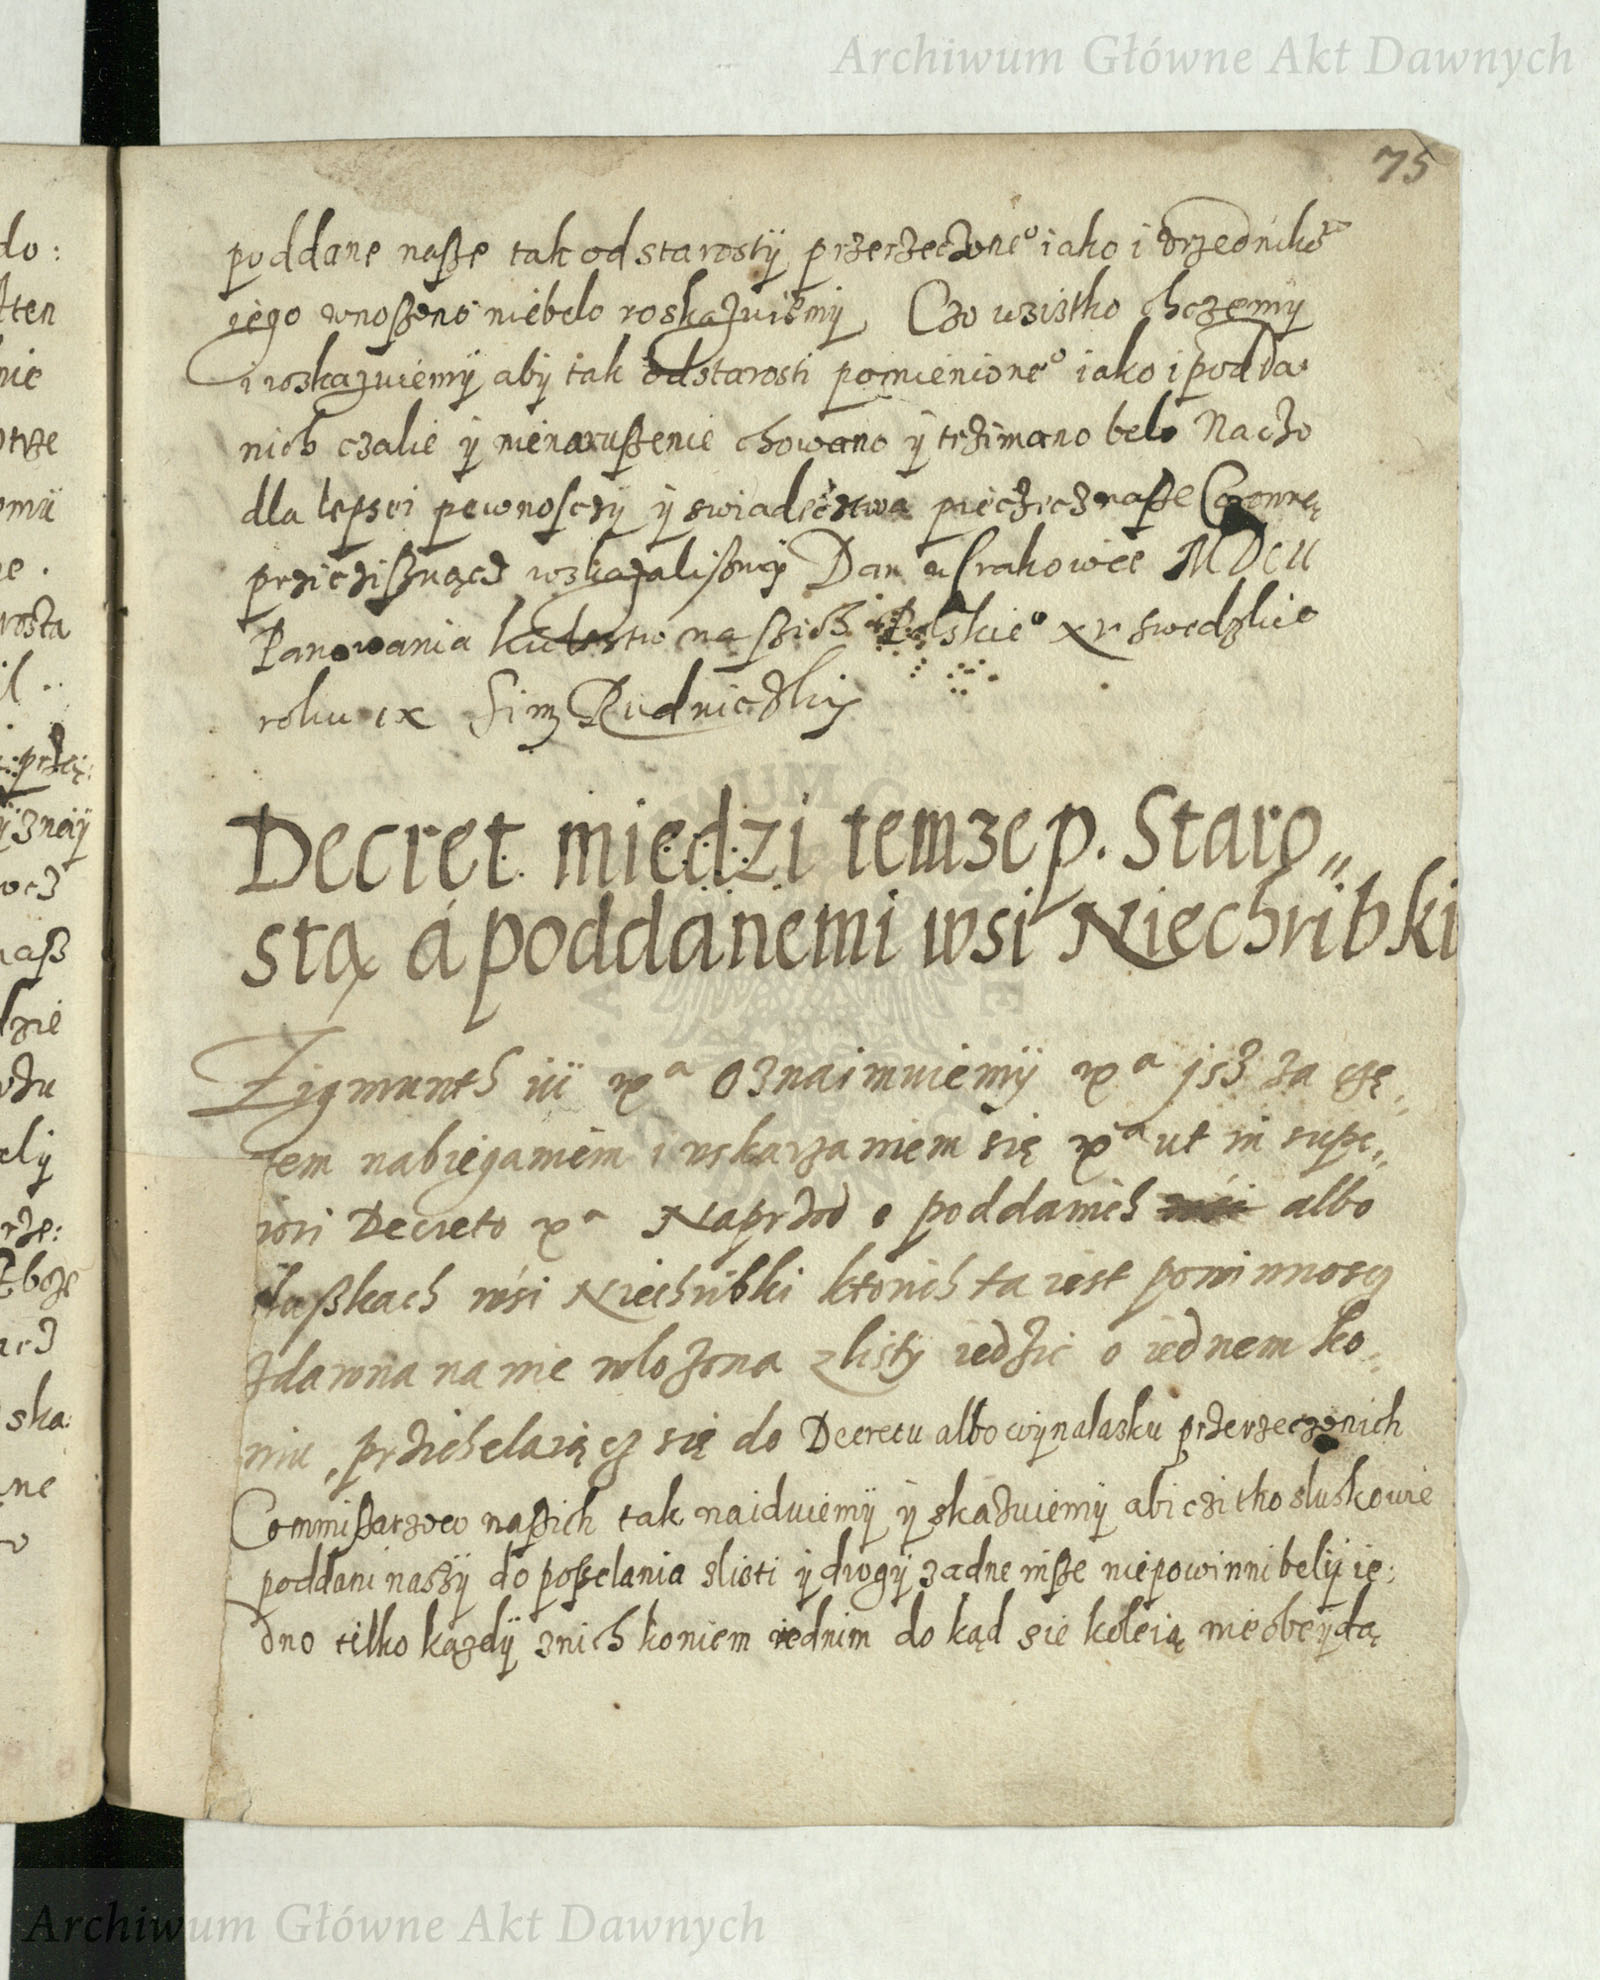 Archiwum Główne Akt Dawnych
75
poddane naße tak od starostÿ przerzeczone° iako i Vrzednikow
iego wnoßono niebelo roskazuiemÿ Czo wszistko chczemÿ
i roskazuiemÿ abÿ tak od starosti pomienione° iako i podda
nich czalie ÿ nienarußenie chowano ÿ trzimano belo Na czo
dla lepsei pewnosczÿ ÿ swiadecztwa pieczięcz naße Coronnę
przicziснącz roskazalismÿ Dan w Crakowiee MDCII
Panowania krolestw naßich Polskie° xv swedzkie°
roku ix Sim Rudniczkij
Decret miedzi temze p. Staro„
stą á poddanemi wsi Niechribki
Zigmunth iii xᵃ Oznaimuiemÿ xᵃ jsz za czę„
tem nabieganiem i uskarzaniem się xᵃ ut in supe„
riori Decreto xᵃ Naprzod o poddanich albo
slaßkach wsi Niechribki ktorich ta iest powinnoscz
zdawna na nie wlozona z listÿ iedzic o iednem ko„
niu, przichelaiącz się do Decretu albo wÿnalasku przerzeczonich
Commißarzow naßich tak naiduiemÿ ÿ skazuiemÿ abi czi tho sluskowie
poddani naszÿ do poßelania z listi ÿ drogÿ zadne inße niepowinni belÿ ie:
dno tilko kazdÿ znich koniem iednim do kąd sie koleią nieobeÿdą
do:
Archiwum Główne Akt Dawnych